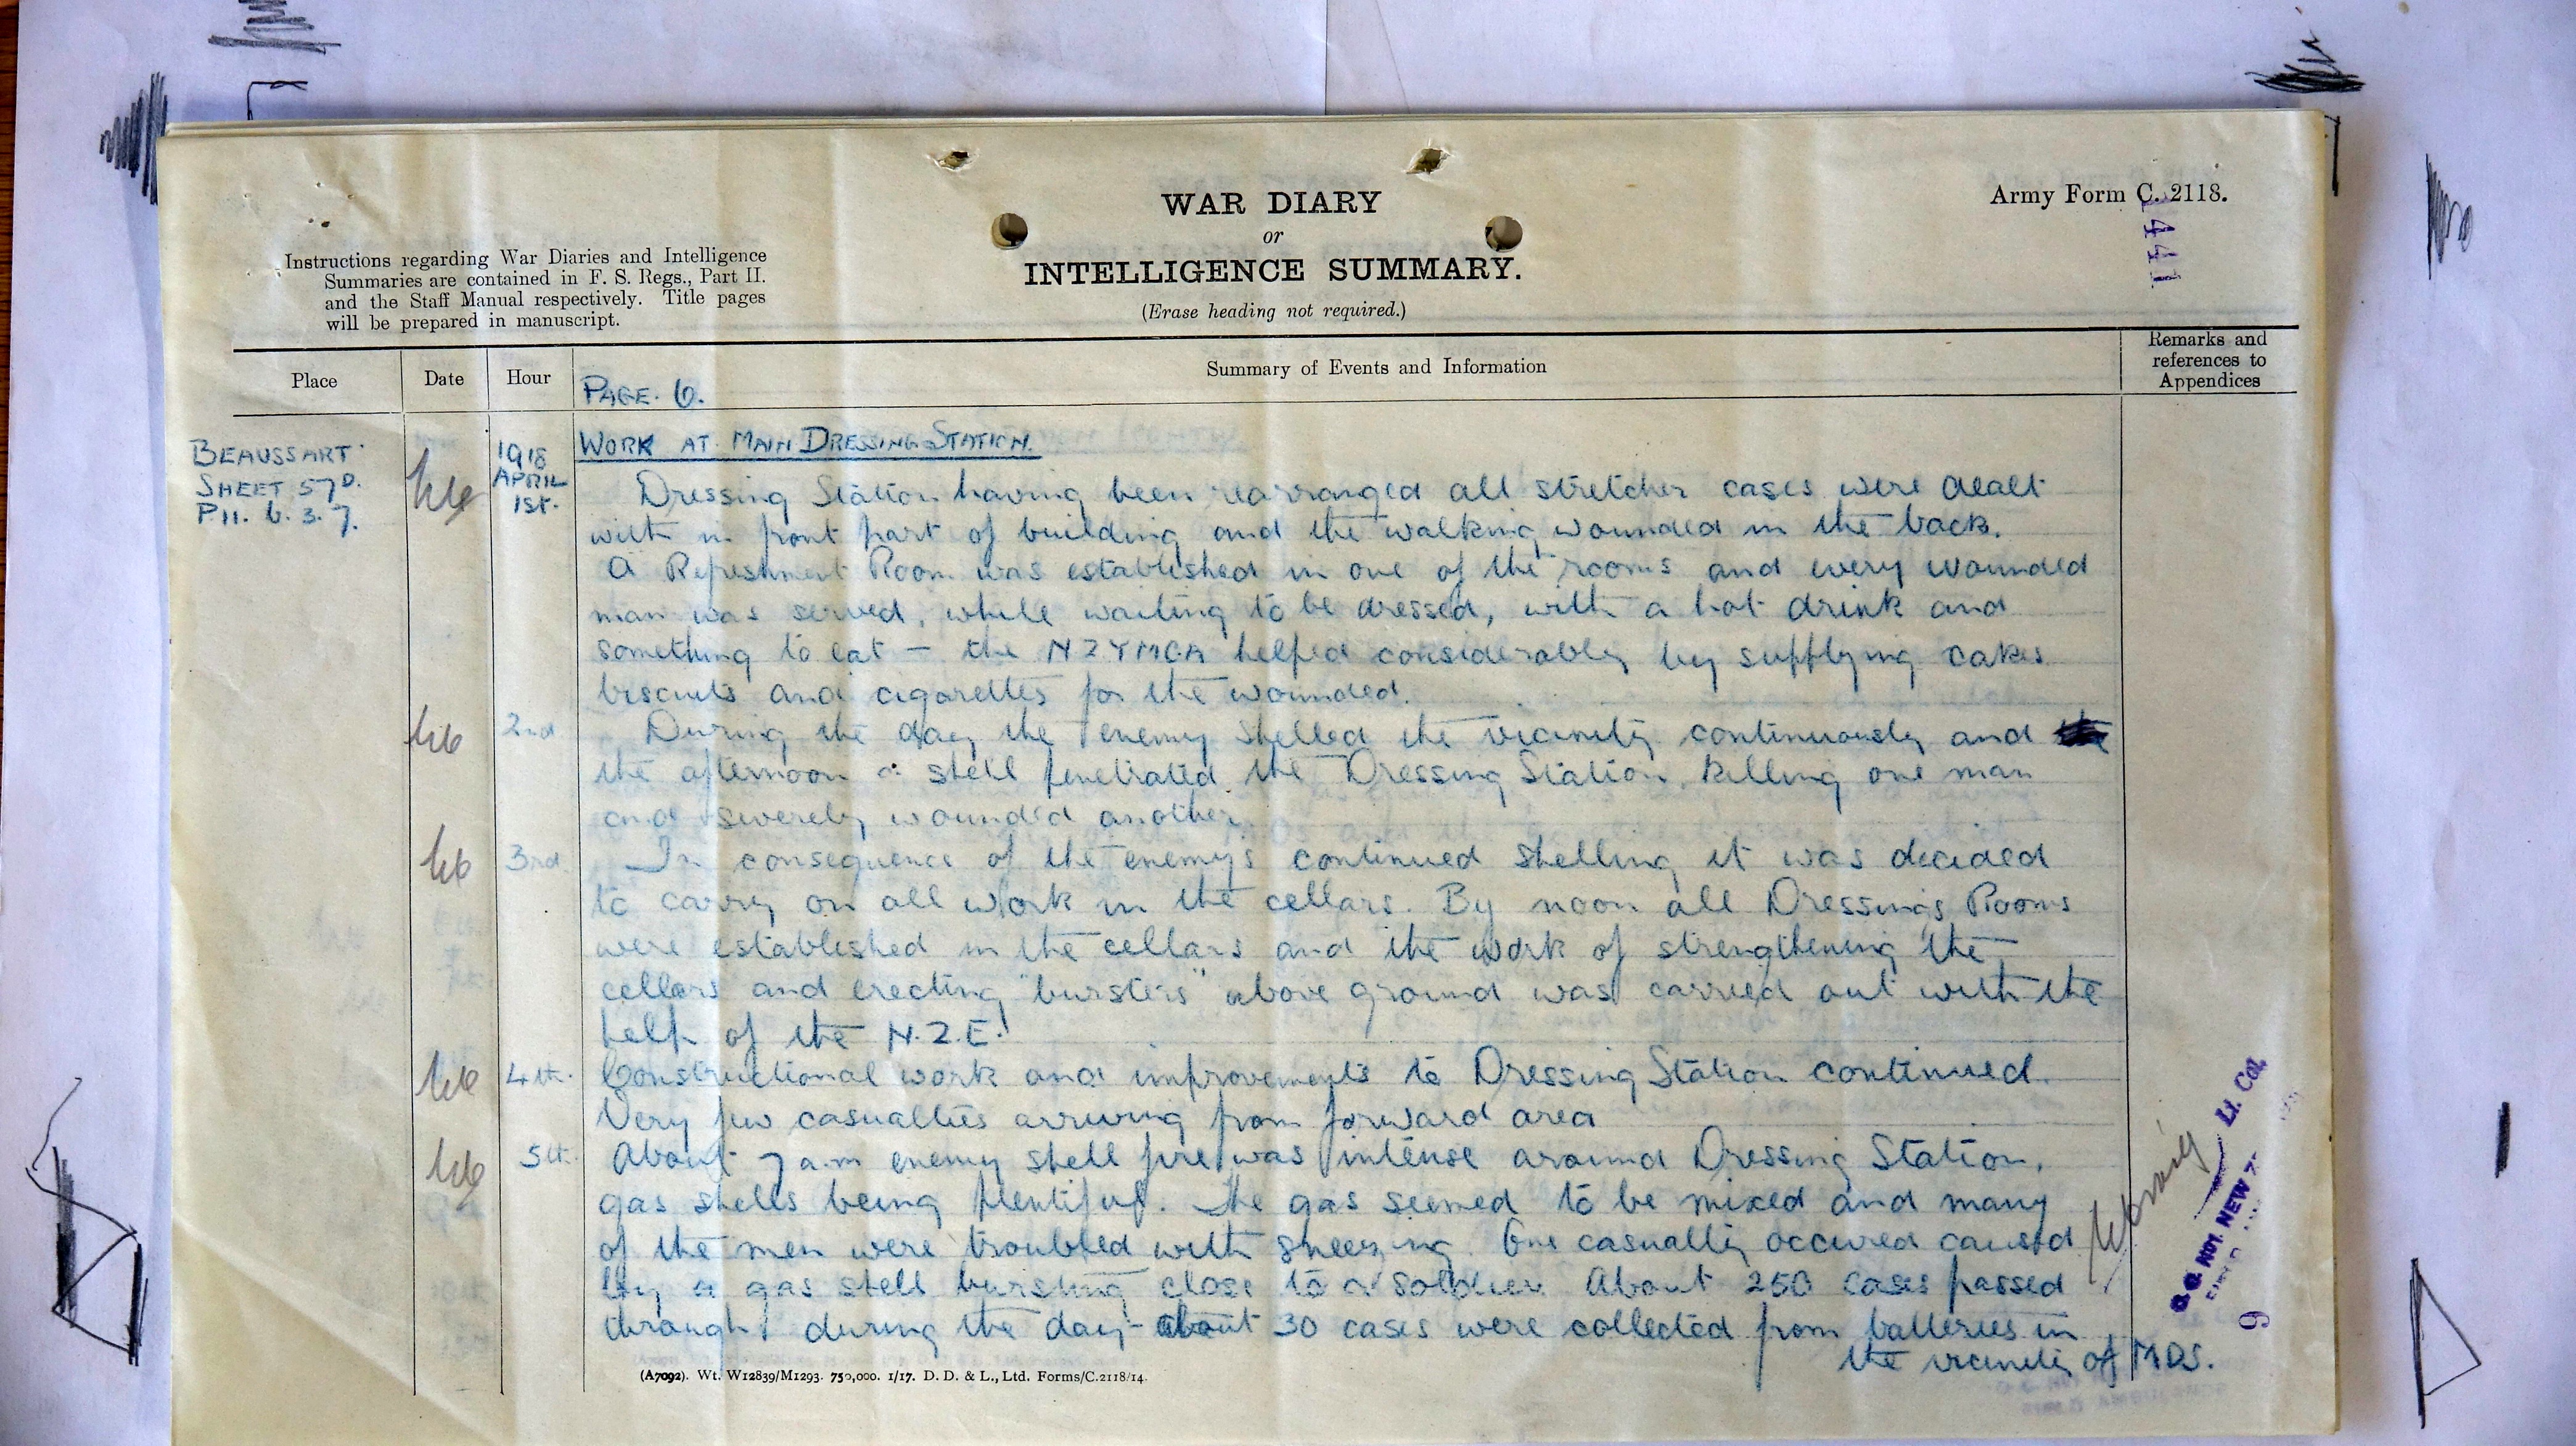 WAR DIARY
or
INTELLIGENCE SUMMARY.
(Erase heading not required.)
Army Form C. 2118.
Instructions regarding War Diaries and Intelligence
Summaries are contained in F. S. Regs., Part II.
and the Staff Manual respectively. Title pages
will be prepared in manuscript.
Place
Date
Hour
Summary of Events and Information
Remarks and
references to
Appendices
PAGE. 6.
BEAUSSART
SHEET 57D.
P11. b. 3. 7.
1918
APRIL
1st.
WORK AT MAIN DRESSING STATION.
Dressing Station having been rearranged all stretcher cases were dealt
with in front part of building and the walking wounded in the back.
A Refreshment Room was established in one of the rooms and every wounded
man was served, while waiting to be dressed, with a hot drink and
something to eat – the NZYMCA helped considerably by supplying cakes
biscuits and cigarettes for the wounded.
2nd
During the day the enemy shelled the vicinity continuously and
the afternoon a shell penetrated the Dressing Station, killing one man
and severely wounded another.
3rd
In consequence of the enemy's continued shelling it was decided
to carry on all work in the cellars. By noon all Dressings Rooms
were established in the cellars and the work of strengthening the
cellars and erecting "bursters" above ground was carried out with the
help of the N.Z.E.
4th.
Constructional work and improvements to Dressing Station continued.
Very few casualties arriving from forward area
5th.
About 7 a.m enemy shell fire was intense around Dressing Station,
gas shells being plentiful. The gas seemed to be mixed and many
of the men were troubled with sneezing. One casualty occured caused
by a gas shell bursting close to a soldier. About 250 cases passed
through during the day – about 30 cases were collected from batteries in
the vicinity of MDS.
Lt. Col.
(A7092). Wt. W12839/M1293. 750,000. 1/17. D. D. & L., Ltd. Forms/C.2118/14.